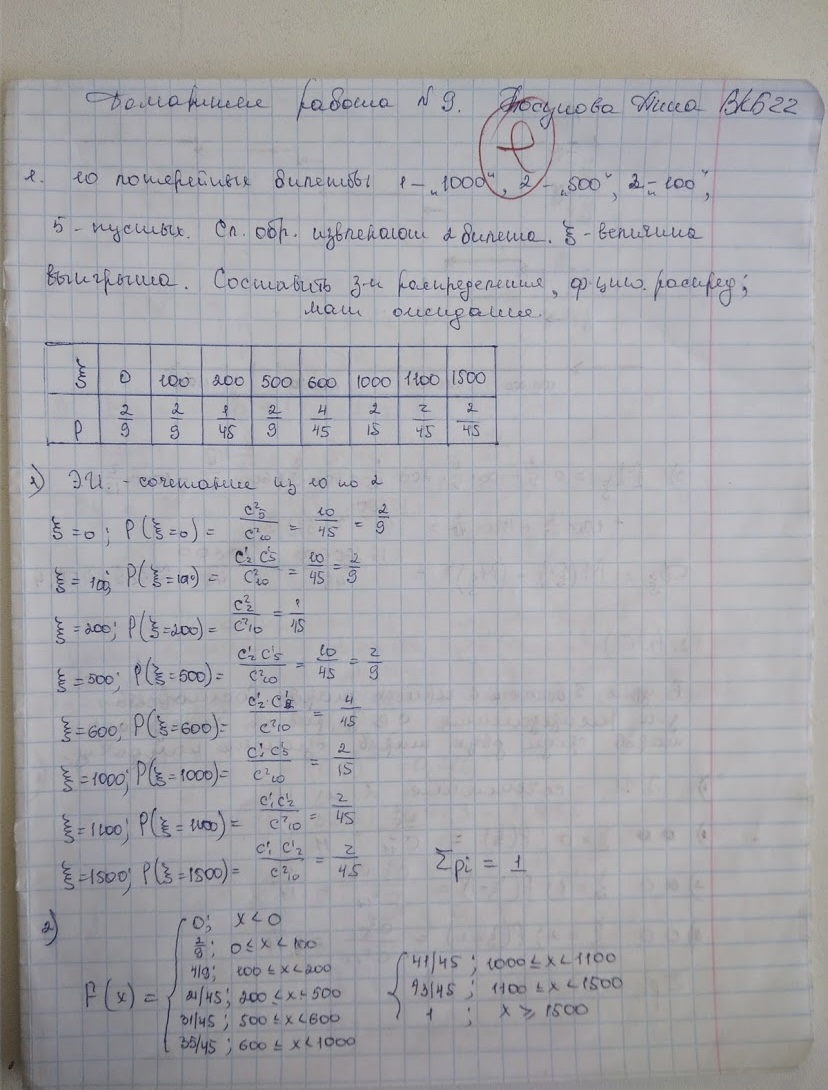 Домашняя работа №9. Юсупова Дина ВКБ22
1. 10 лотерейные билетовы 1-„1000", 2-„500", 2-„100",
5-пустых. Сл. обр. извлекают 2 билета. ξ-величина
выигрыша. Составить з-н распределения, ф-цию распред;
мат ожидание.
ξ 0 100 200 500 600 1000 1100 1500
P 2/9 2/9 1/45 2/9 4/45 2/15 2/45 2/45
1) Э.И. - сочетание из 10 по 2
ξ=0; P(ξ=0) = C²₅/C²₁₀ = 10/45 = 2/9
ξ=100; P(ξ=100) = C¹₂C¹₅/C²₁₀ = 10/45 = 2/9
ξ=200; P(ξ=200) = C²₂/C²₁₀ = 1/45
ξ=500; P(ξ=500) = C¹₂C¹₅/C²₁₀ = 10/45 = 2/9
ξ=600; P(ξ=600) = C¹₂·C¹₂/C²₁₀ = 4/45
ξ=1000; P(ξ=1000) = C¹₁C¹₅/C²₁₀ = 2/15
ξ=1100; P(ξ=1100) = C¹₁C¹₂/C²₁₀ = 2/45
ξ=1500; P(ξ=1500) = C¹₁C¹₂/C²₁₀ = 2/45 Σpi = 1
2)
F(x) =
0; x<0
2/9; 0≤x<100
4/9; 100≤x<200
21/45; 200≤x<500
31/45; 500≤x<600
35/45; 600≤x<1000
41/45; 1000≤x<1100
43/45; 1100≤x<1500
1; x≥1500